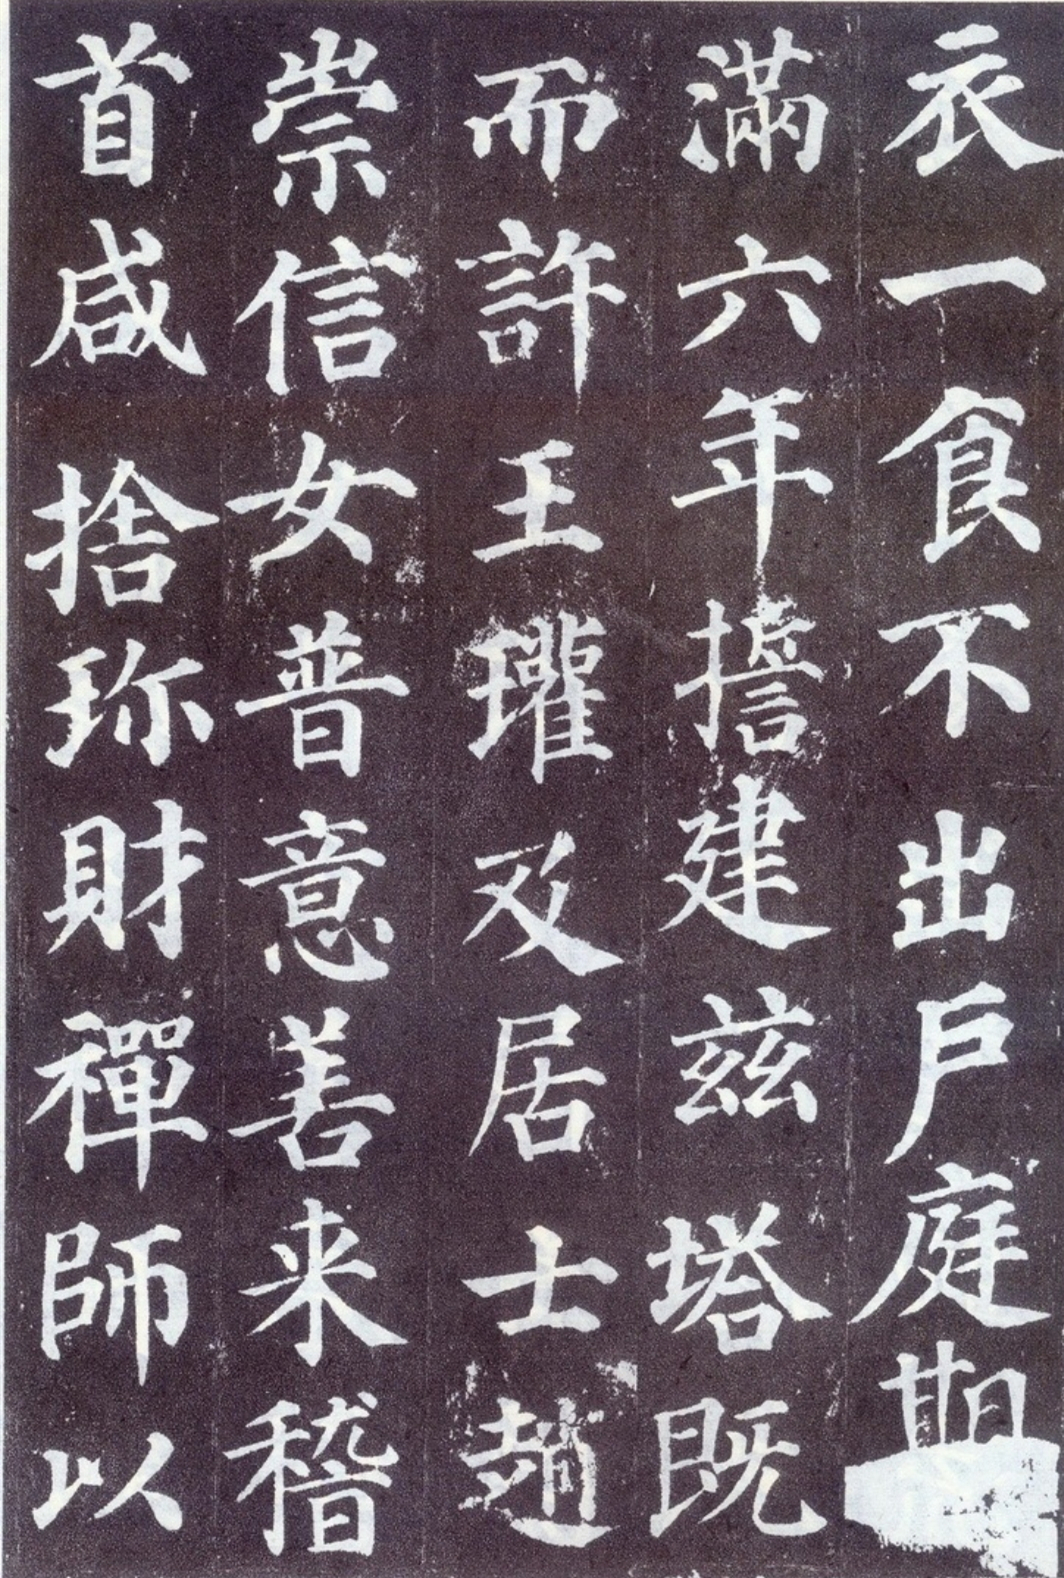 衣一食不出戶庭期
滿六年擔建茲塔既
而許王瓘及居士趙
崇信女普意善来稽
首咸捨珎財禪師以